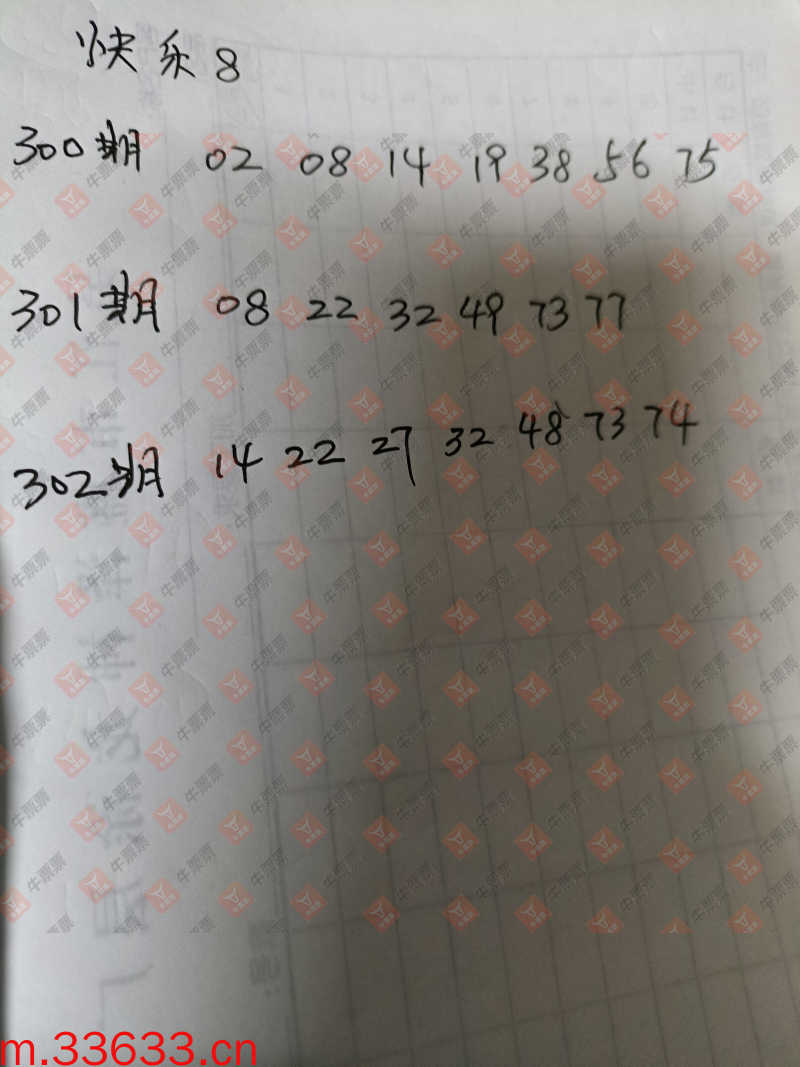 快乐8
300期 02 08 14 19 38 56 75
301期 08 22 32 49 73 77
302期 14 22 27 32 48 73 74
m.33633.cn